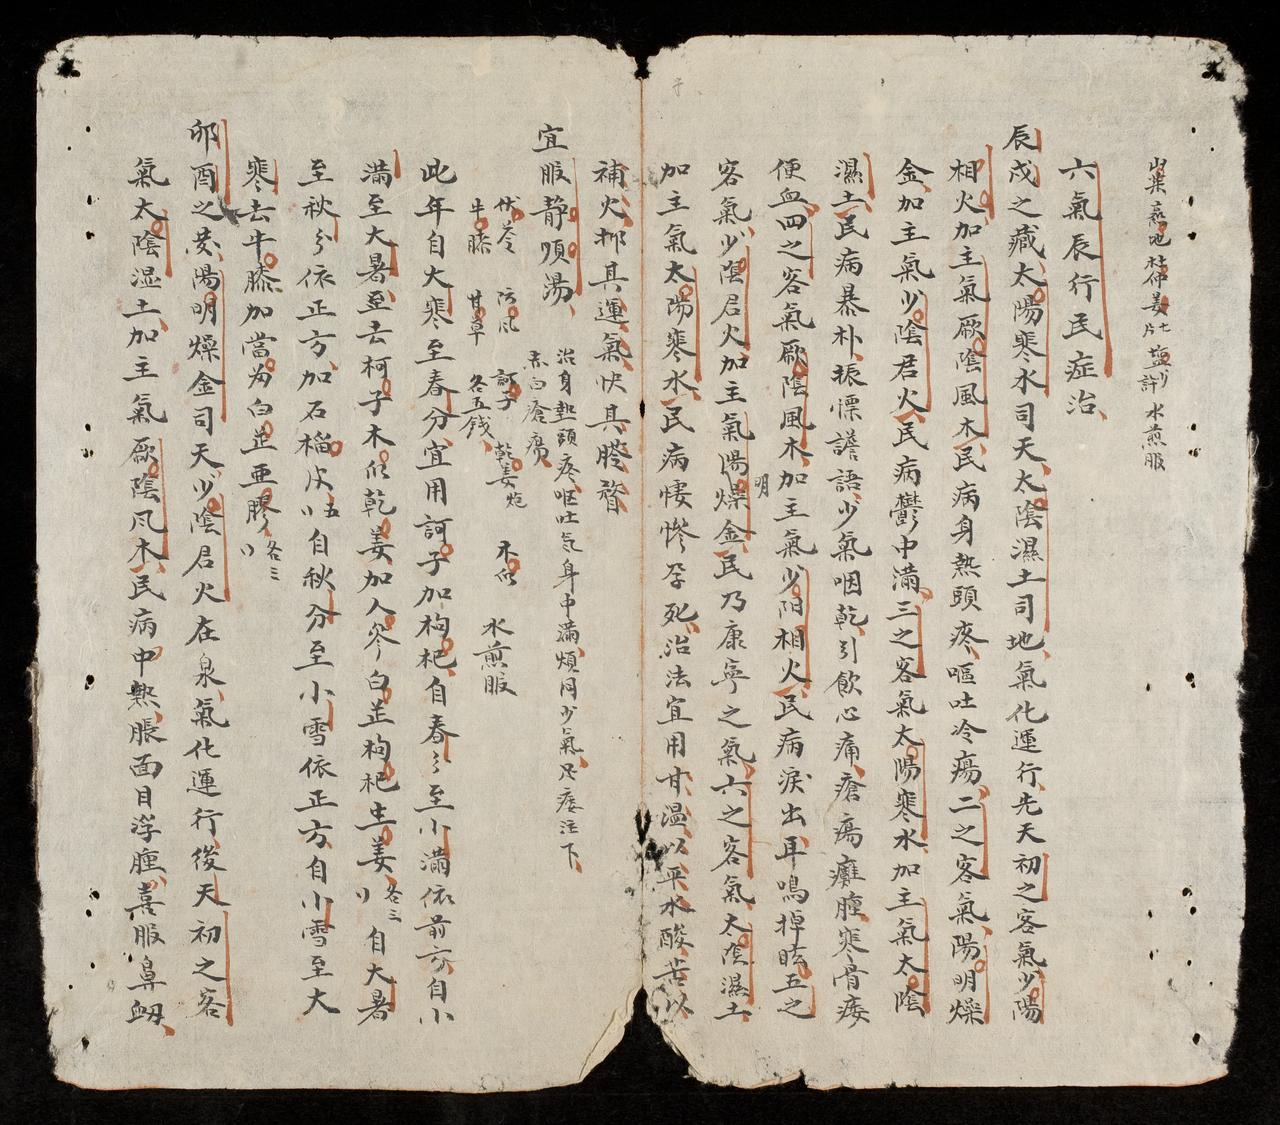 熟地杜仲姜七片塩少許水煎服
六氣辰行民症治
辰戌之歲太陽寒水司天太陰濕土司地氣化運行先天初之客氣少陽
相火加主氣厥陰風木民病身熱頭疼嘔吐冷瘍二之客氣陽明燥
金加主氣少陰君火民病鬱中滿三之客氣太陽寒水加主氣太陰
濕土民病暴朴振慄譫語少氣咽乾引飲心痛瘡瘍癰腫寒骨痿
便血四之客氣厥陰風木加主氣少阳相火民病淚出耳鳴掉眩五之
客氣少陰君火加主氣陽明燥金民乃康寧之氣六之客氣太陰濕土
加主氣太陽寒水民病悽慘孕死治法宜用甘温以平水酸苦以
補火抑其運氣快其勝
宜服静順湯
治身熱頭疼嘔吐気身中滿煩悶少氣足痿注下
赤白瘡瘍
茯苓 防風 訶子 乾姜炮 木瓜
牛膝 甘草 各五錢
水煎服
此年自大寒至春分宜用訶子加枸杞自春分至小滿依前方自小
滿至大暑至去柯子木瓜乾姜加人參白芷枸杞生姜各三自大暑
至秋分依正方加石榴皮五自秋分至小雪依正方自小雪至大
寒去牛膝加當歸白芷亜膠各三
卯酉之歲陽明燥金司天少陰君火在泉氣化運行後天初之客
氣太陰湿土加主氣厥陰风木民病中熱脹面目浮腫喜服鼻衂